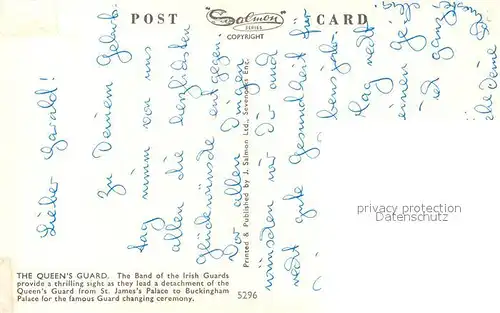 POST CARD
Salmon
SERIES
COPYRIGHT
Lieber Harald!
Zu Deinem Geburts-
tag nimm von uns
allen die herzlichsten
Glückwünsche entgegen.
Vor allen Dingen
wünschen wir Dir
recht gute Gesundheit für
Tag recht
einen
ist ganz
Printed & Published by J. Salmon Ltd., Sevenoaks Eng.
privacy protection
Datenschutz
THE QUEEN'S GUARD. The Band of the Irish Guards
provide a thrilling sight as they lead a detachment of the
Queen's Guard from St. James's Palace to Buckingham
Palace for the famous Guard changing ceremony.
5296